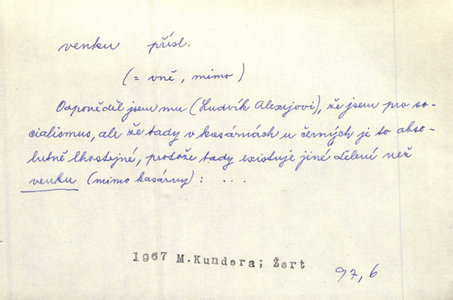 venku přísl.
(= vně, mimo)
Odpověděl jsem mu (Ludvík Alexejovi), že jsem pro so-
cialismus, ale že tady v kasárnách u černých je to abso-
lutně lhostejné, protože tady existuje jiné dělení než
venku (mimo kasárny): ...
1967 M.Kundera; Žert
97,6